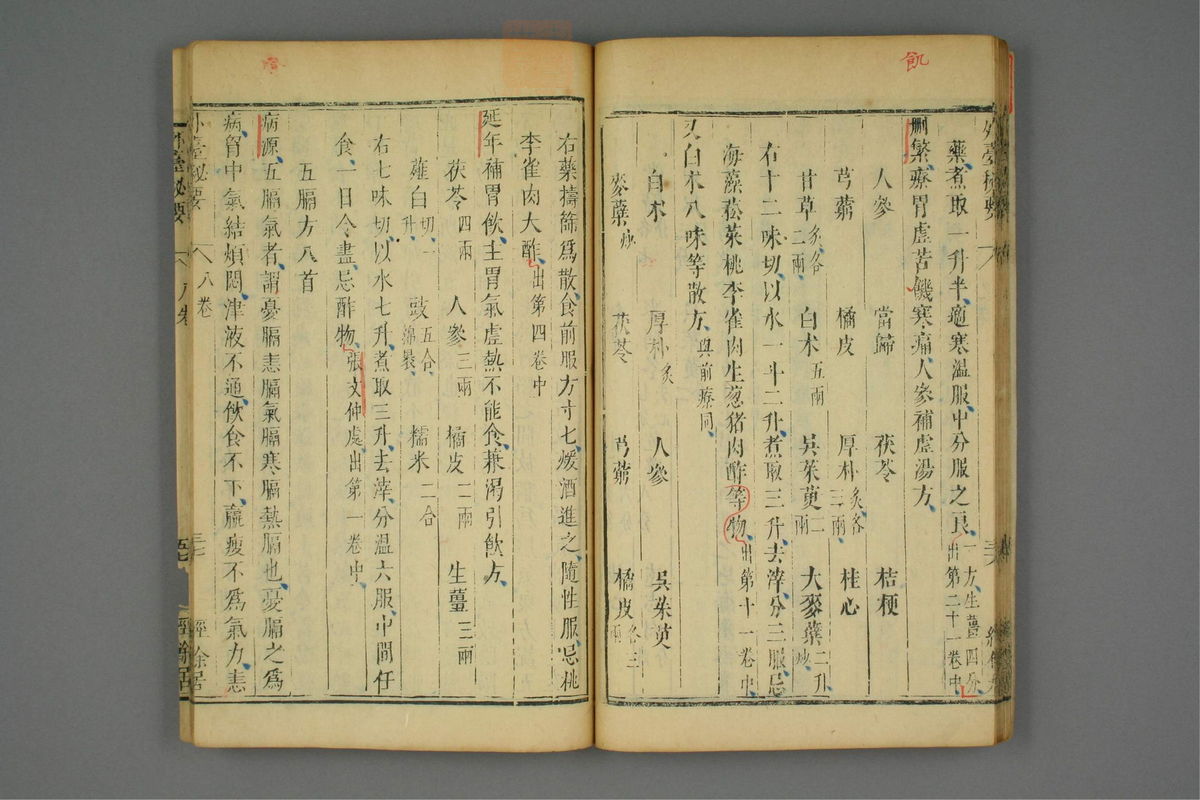 飢
外臺秘要
藥煮取一升半適寒温服中分服之良一方生薑四分出第二十一卷中
刪繁療胃虛苦饑寒痛人參補虛湯方
人參 當歸 茯苓 桔梗
芎藭 橘皮 厚朴炙各三兩 桂心
甘草炙各二兩 白术五兩 吳茱萸二兩 大麥蘗二升炒
右十二味切以水一斗二升煮取三升去滓分三服忌
海藻菘菜桃李雀肉生葱猪肉酢等物出第十一卷中
又白术八味等散方與前療同
白术 厚朴炙 人參 吳茱萸
麥蘗炒 茯苓 芎藭 橘皮各三兩
右藥擣篩爲散食前服方寸七煖酒進之隨性服忌桃
李雀肉大酢出第四卷中
延年補胃飲主胃氣虛熱不能食兼渴引飲方
茯苓四兩 人參三兩 橘皮二兩 生薑三兩
薤白切一升 豉五合綿裹 糯米二合
右七味切以水七升煮取三升去滓分温六服中間任
食一日令盡忌酢物張文仲處出第一卷中
五膈方八首
病源五膈氣者謂憂膈恚膈氣膈寒膈熱膈也憂膈之爲
病胷中氣結煩悶津液不通飲食不下羸瘦不爲氣力恚
外臺秘要 八卷 經餘居